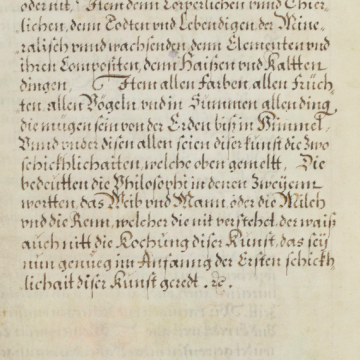 oder nit. Item denn Cörperlichen vnnd Thier-
lichen, denn Todten vnd Lebendigen, der Mine-
ralisch vnnd wachsenden, denn Elementen vnd
ihren Compositen, denn Haißen vnd Kaltten
dingen, Item allen Farben, allen Früch-
ten, allen Vögeln vnd in Summen allen ding,
die mügen sein von der Erden biß in Himmel,
Vnnd vnder disen allen seien diser kunst die zwo
schickhlichaiten, welche oben gemeltt. Die
bedeütten die Philosophi in denen Zweyenn
wortten, das Weib vnd Mann, oder die Milch
vnd die Renn, welcher die nit verstehet, der waiß
auch nitt die Kochung diser Kunst, das seÿ
nun genueg im Anfanng der Ersten schickh-
lichait diser Kunst geredt. ꝛc.